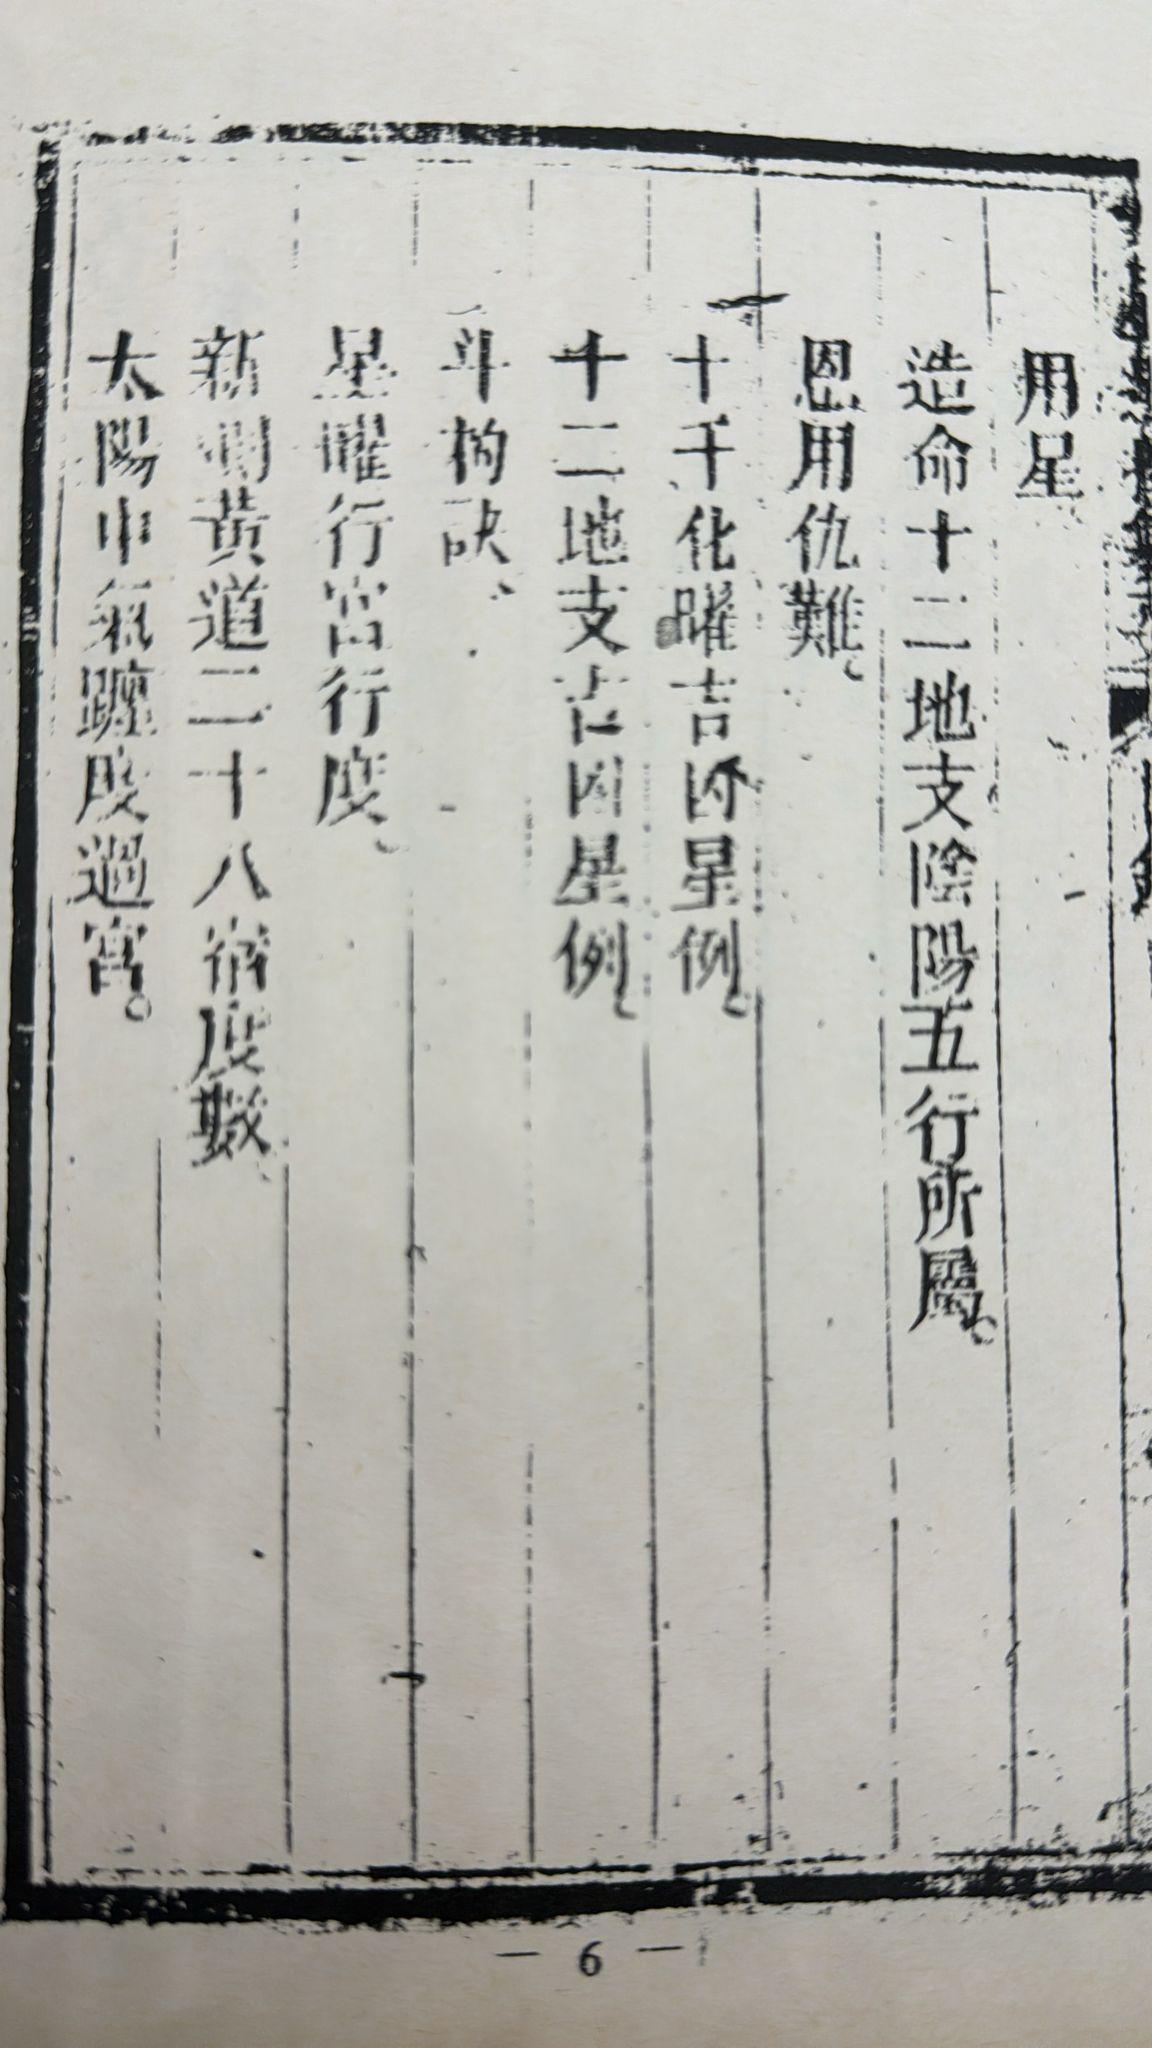 用星
造命十二地支陰陽五行所屬。
恩用仇難、
十干化曜吉凶星例、
十二地支吉凶星例、
斗杓訣、
星曜行宮行度、
新測黃道二十八宿度數、
太陽中氣躔度過宮。
— 6 —